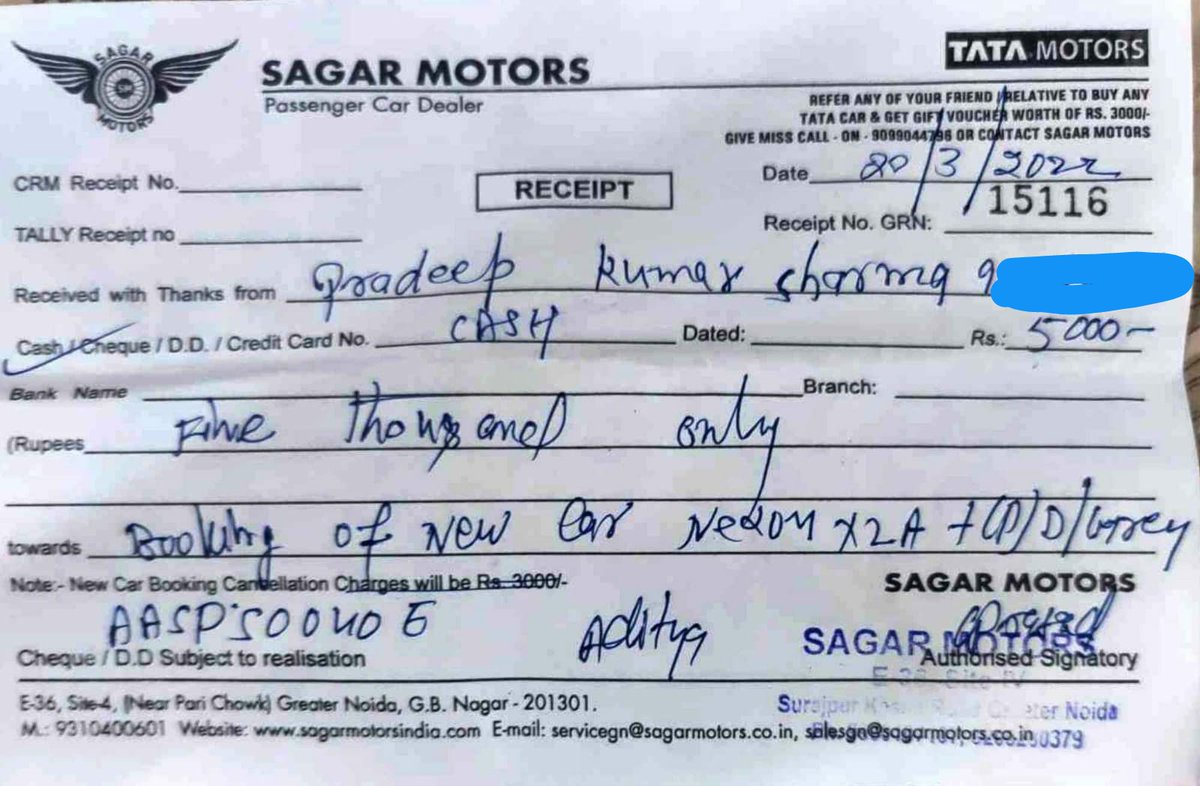 SAGAR MOTORS
SM
SAGAR MOTORS
Passenger Car Dealer
TATA MOTORS
REFER ANY OF YOUR FRIEND / RELATIVE TO BUY ANY
TATA CAR & GET GIFT VOUCHER WORTH OF RS. 3000/-
GIVE MISS CALL - ON - 9099044798 OR CONTACT SAGAR MOTORS
CRM Receipt No.
RECEIPT
Date 20/3/2022
TALLY Receipt no
Receipt No. GRN: 15116
Received with Thanks from Pradeep Kumar Sharma 9
Cash / Cheque / D.D. / Credit Card No. CASH Dated: Rs.: 5000-
Bank Name Branch:
(Rupees Five Thousand only
towards Booking of New Car Nexon XZA + (P)/D/Grey
Note:- New Car Booking Cancellation Charges will be Rs. 3000/-
SAGAR MOTORS
Aditya
SAGAR MOTORS
Cheque / D.D Subject to realisation
Authorised Signatory
E-36, Site-4, (Near Pari Chowk) Greater Noida, G.B. Nagar - 201301.
M.: 9310400601 Website: www.sagarmotorsindia.com E-mail: servicegn@sagarmotors.co.in, salesgn@sagarmotors.co.in
E-36, Site IV
Surajpur Greater Noida